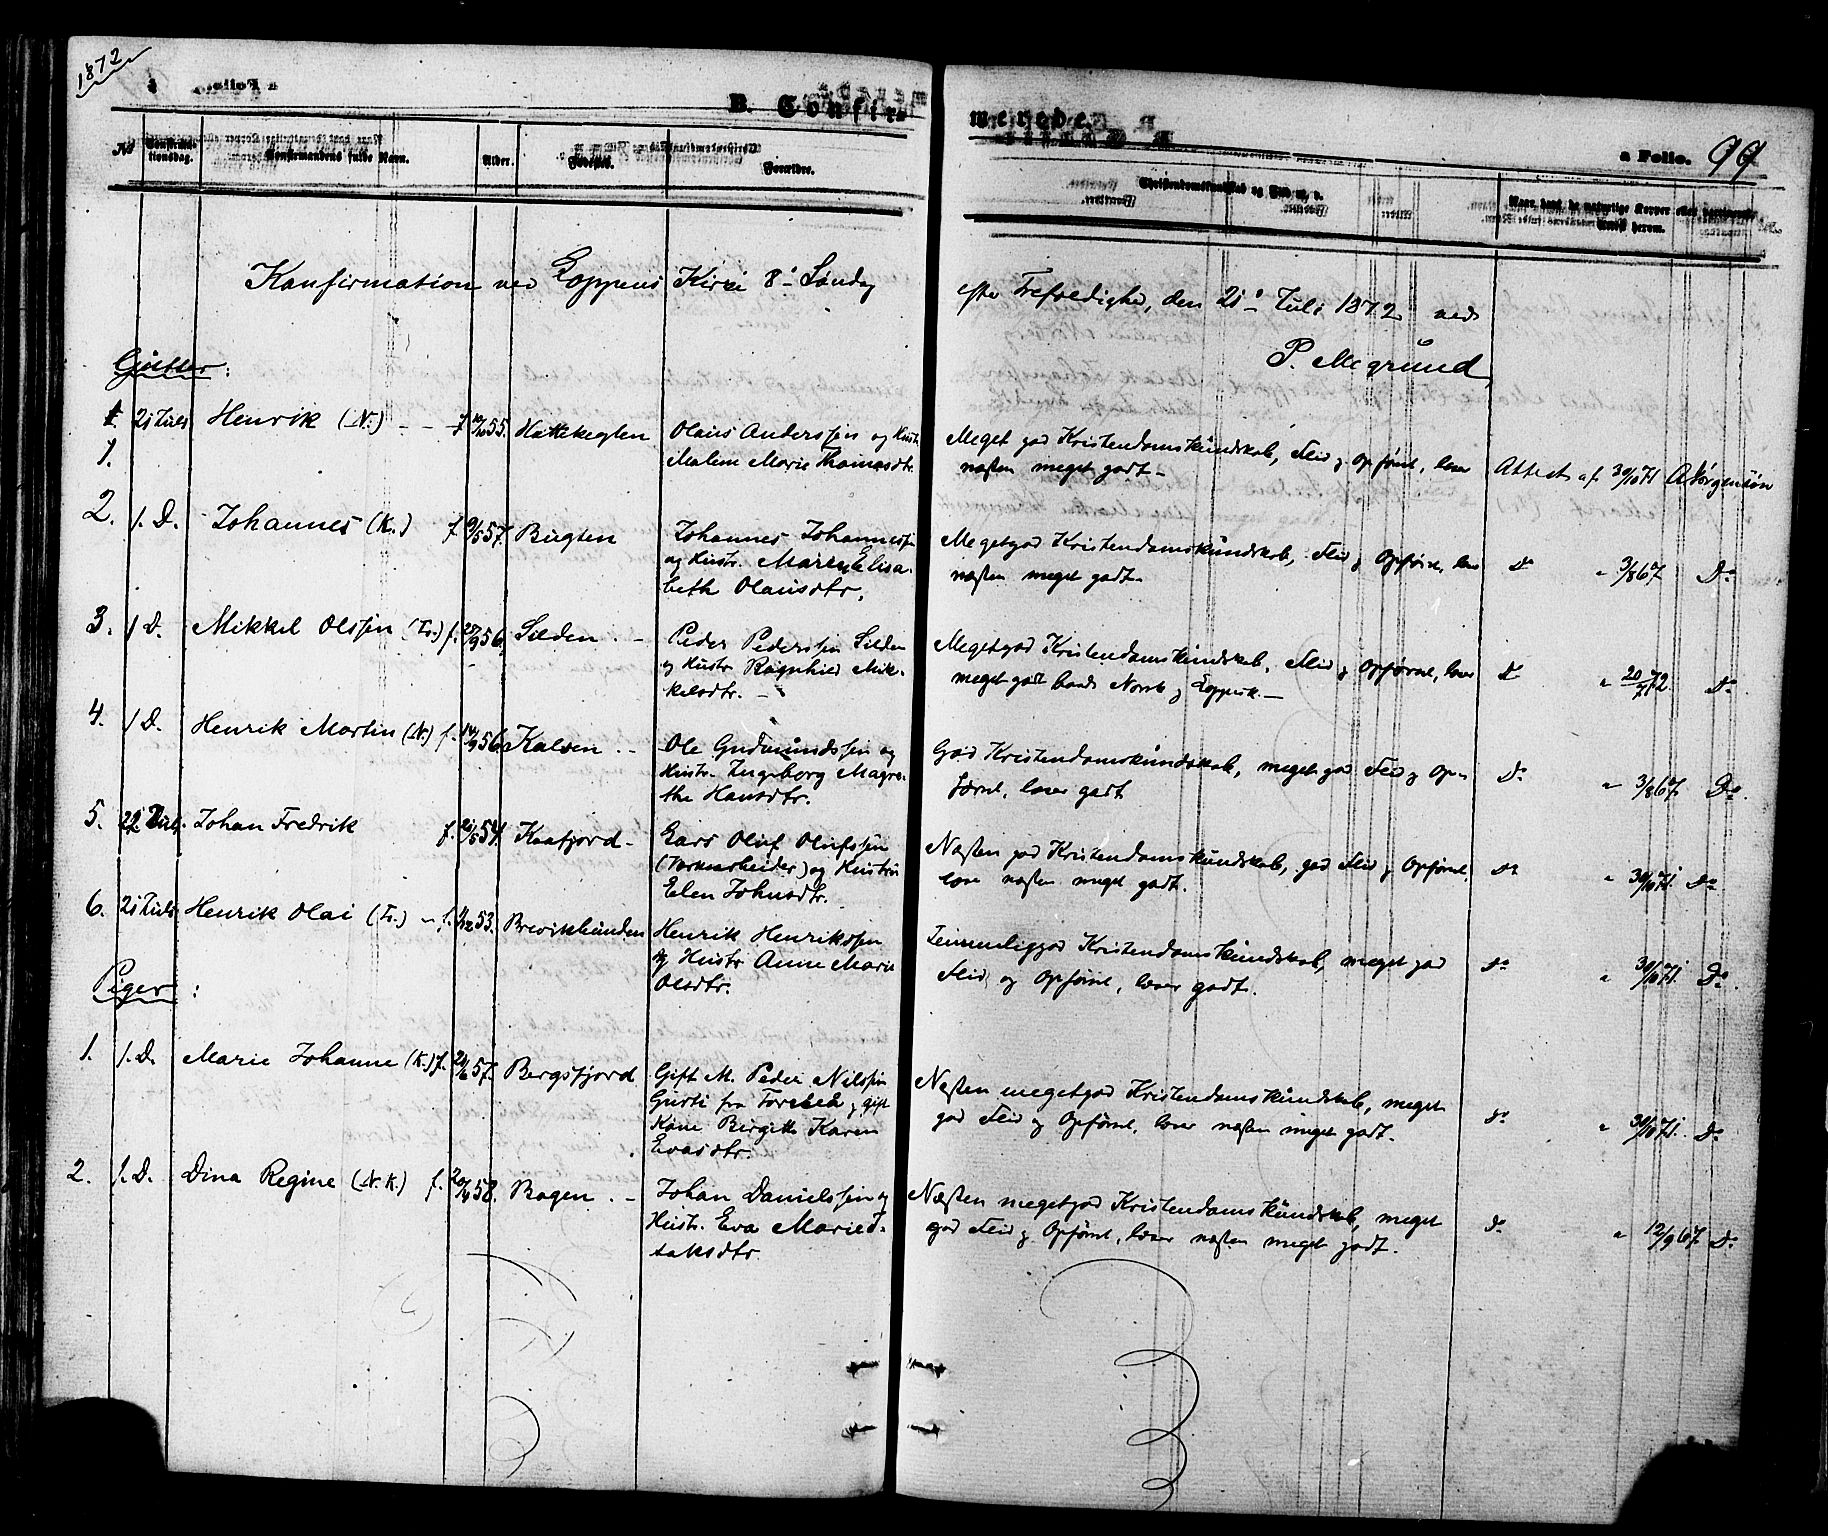 1872
B. Confir=
merede.
a Folio. 99
No
Confirma-
tionsdag.
Confirmandens fulde Navn.
Alder.
Fødested.
Forældre.
Christendomskundskab og Flid m. v.
Konfirmation ved Loppens Kirke 8de Søndag
efter Trefoldighed, den 21de Juli 1872 ved
P. Mogrund
Gutter:
1. 21 Juli Henrik (N.) f 55. Hættekegten Olaus Anderssen og Hustr.
Malene Marie Thomasdtr.
Meget god Kristendomskundskab, Flid og Opførsel, læser
næsten meget godt.
Attest af 30/10 71 A Jørgensen
2. J. D. Johannes (K.) f. 9/5 57. Bugten Johannes Johannessen
og Hustr. Maren Elisa-
beth Olausdtr.
Meget god Kristendomskundskab, Flid og Opførsel, læser
næsten meget godt.
Do " 3/8 67 Do
3. J D. Mikkel Olssen f. 56. Silden Peder Pederssen Silden
og Hustr Ragnhild Mik-
kelsdtr.
Meget god Kristendomskundskab, Flid og Opførsel, læser
meget godt baade Norsk og Lappisk.
Do " 72. Do
4. J D. Henrik Martin (N.) f. 14/9 56 Kalven Ole Gudmundssen og
Hustr. Ingeborg Magre-
the Hansdtr.
God Kristendomskundskab, meget god Flid og Op-
førsel, læser godt
Do " 3/8 67. Do.
5. Johan Fredrik f. 54. Kaafjord Lars Oluf Olufssen
(Værkarbeider) og Hustru
Elen Johnsdtr.
Næsten god Kristendomskundskab, god Flid og Opførsel,
læser næsten meget godt.
do " 30/10 71. Do
6. 21 Juli Henrik Olai f. 53. Brevikbunden Henrik Henrikssen
og Hustr Anne Marie
Olsdtr.
Temmelig god Kristendomskundskab, meget god
Flid og Opførsel, læser godt.
do " 30/10 71. Do.
Piger:
1. J. D. Marie Johanne (K.) f. 57. Bergsfjord Gift M. Peder Nilssen
Gurti fra Torneå og gift
Kone Birgitte Karen
Evasdtr.
Næsten meget god Kristendomskundskab, meget
god Flid og Opførsel, læser næsten meget godt.
do " 30/10 71. Do
2. J. D. Dina Regine (N. K.) f. 58. Bogen Johan Danielssen og
Hustr. Eva Marie I-
saksdtr.
Næsten meget god Kristendomskundskab, meget
god Flid og Opførsel, læser næsten meget godt.
do " 12/9 67 Do